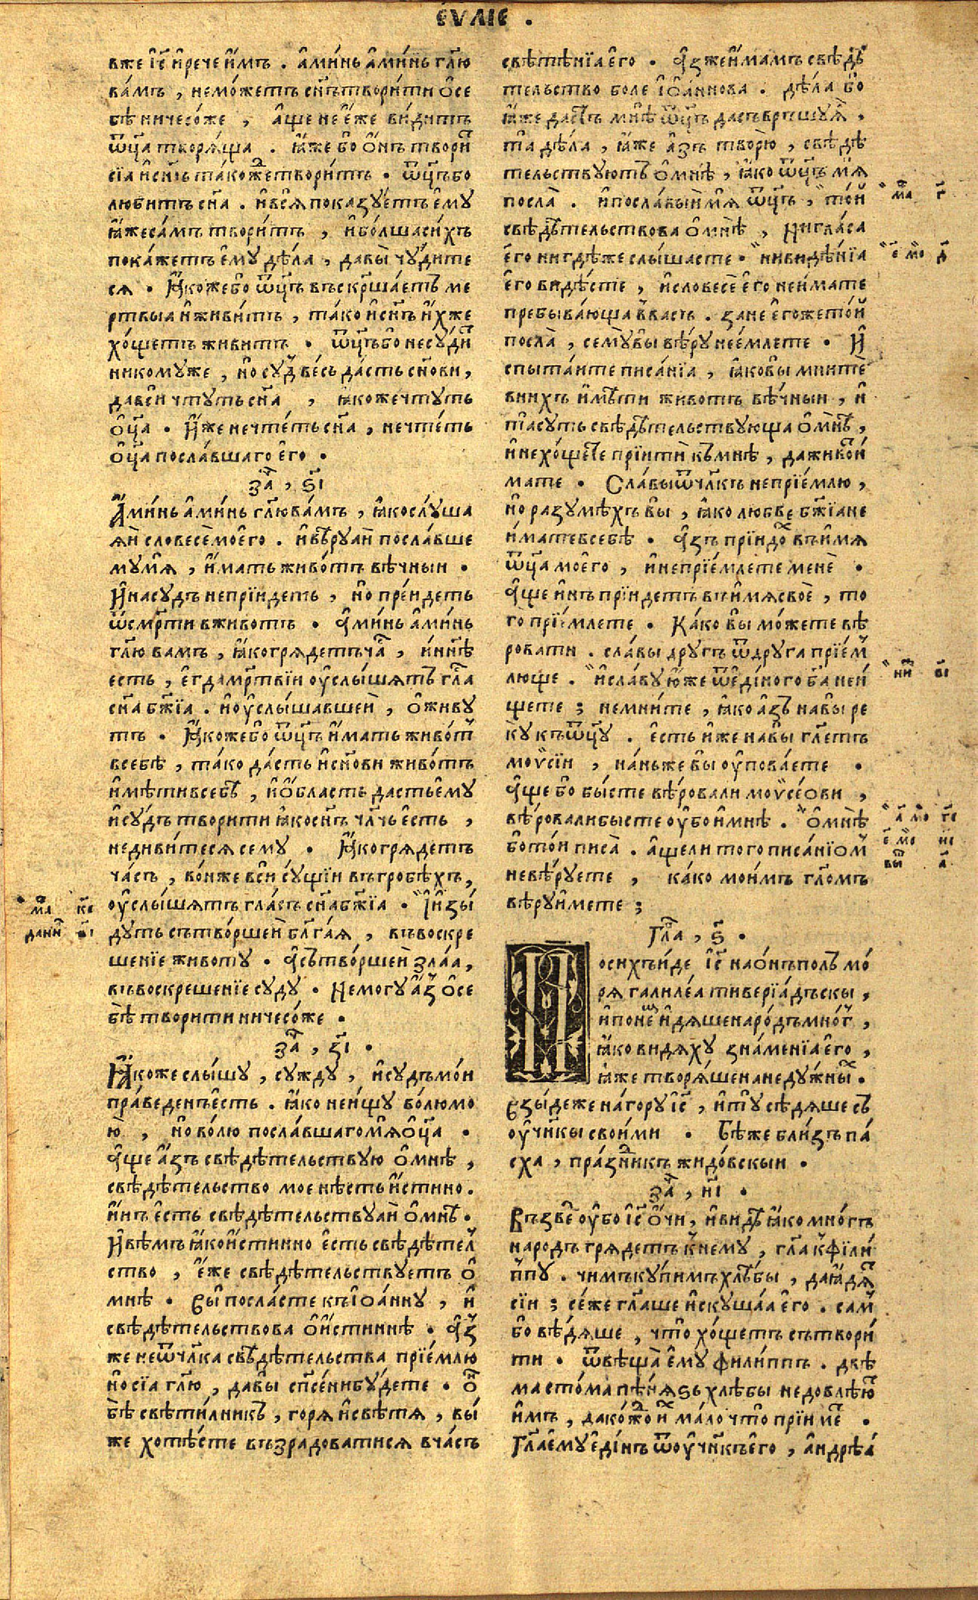 еѵⷢ҇лїе .
вже і҃с и҆рече и҆мъ . а҆минь а҆минь гл҃ю
вамъ , неможетъ сн҃ъ творити ѡ҆се
бѣ ничесоже , аще не е҆же видитъ
ѿц҃а творѧща . ꙗ҆же бо о҆нъ твори
сїа и҆сн҃ъ такожⷣе творитъ . ѿц҃ъ бо
любитъ сн҃а . и҆всѧ показꙋетъ е҆мꙋ
ꙗ҆же самъ творитъ , и҆болша сихъ
покажетъ е҆мꙋ дѣла , давы чюдите
сѧ . Ꙗ҆коже бо ѿц҃ъ въскр҃шаетъ ме
ртвыа и҆живитъ , тако и҆сн҃ъ и҆хже
хощетъ живитъ . ѿц҃ъ бо несꙋди
никомꙋже , но сꙋⷣ весь дасть сн҃ови ,
давси чтꙋть сн҃а , ꙗ҆коже чтꙋть
о҆ц҃а . И҆же нечтеть сн҃а , нечтеть
о҆ц҃а пославшаго е҆го .
заⷱ҇ , ѕ҃і
А҆минь а҆минь гл҃ю вамъ , ꙗ҆ко слꙋша
ѧи словесе моего . и҆вѣрꙋѧи пославше
мꙋ мѧ , и҆мать животъ вѣчныи .
И҆насꙋдъ непрїидеть , но преидеть
ѿсмр҃ти вживотъ . а҆минь а҆минь
гл҃ю вамъ , ꙗ҆ко грѧдетъ чаⷭ҇ , и҆нн҃ѣ
есть , е҆гда мр҃твїи оу҆слышатъ гл҃а
сн҃а бж҃їа . и҆оу҆слышавшеи , о҆живꙋ
тъ . Ꙗ҆коже бо ѿц҃ъ и҆мать животъ
всебѣ , тако дасть и҆сн҃ови животъ
и҆мѣти всебѣ , и҆область дасть е҆мꙋ
и҆сꙋдъ творити ꙗ҆ко сн҃ъ чл҃чь есть ,
недивитесѧ семꙋ . Ꙗ҆ко грѧдетъ
часъ , воньже вси сꙋщїи въгробѣхъ ,
оу҆слышатъ гласъ сн҃а бж҃їа . И҆изы
дꙋть сътворшеи бл҃гаа , въвоскре
шенїе животꙋ . а҆сътворшеи злаа ,
въвоскрешенїе сꙋдꙋ . Немогꙋ а҆зъ ѡ҆се
бѣ творити ничесоже .
заⷱ҇ , з҃і .
Ꙗ҆коже слышꙋ , сꙋждꙋ , и҆сꙋдъ мои
праведенъ есть . ꙗ҆ко неищꙋ волю мо
ю , но волю пославшаго мѧ о҆ц҃а .
а҆ще а҆зъ свѣдѣтельствꙋю ѡ҆мнѣ ,
свѣдѣтельство мое нѣсть и҆стинно .
и҆нъ есть свѣдѣтельствꙋѧи ѡ҆мнѣ .
И҆вѣмъ ꙗ҆ко и҆стинно есть свѣдѣтел
ство , е҆же свѣдѣтельствꙋетъ ѡ҆
мнѣ . вы посласте къ і҆оаннꙋ , и҆
свѣдѣтельствова ѡ҆истиннѣ . а҆з
же неѿчл҃ка свѣдѣтельства прїемлю
но сїа гл҃ю , давы сп҃сени бꙋдете . ѻ҆
бѣ свѣтилникъ , горѧ и҆свѣтѧ , вы
же хотѣсте възрадоватисѧ вчасъ
свѣтѣнїа е҆го . а҆з же и҆мамъ свѣдѣ
тельство боле і҆ѡаннова . дѣла бо
ꙗ҆же дастъ мнѣ ѿц҃ъ дасъвръшꙋѧ ,
та дѣла , ꙗ҆же а҆зъ творю , свѣдѣ
тельствꙋютъ ѡ҆мнѣ , ꙗ҆ко ѿц҃ъ мѧ
посла . и҆пославыи мѧ ѿц҃ъ , тои
свѣдѣтельствова ѡ҆мнѣ , Ни гласа
е҆го нигдѣже слышасте . ни видѣнїа
е҆го видѣсте , и҆словесе е҆го неимате
пребывающа ввасъ . зане е҆гоже той
посла , семꙋ вы вѣрꙋ неемлете . И҆
спытаите писанїа , ꙗ҆ко вы мните
внихъ и҆мѣти животъ вѣчныи , и҆
та сꙋть свѣдѣтельствꙋюща ѡ҆мнѣ ,
и҆нехощете прїити къмнѣ , да живои
мате . Славы ѿчл҃къ непрїемлю ,
но разꙋмѣхъ вы , ꙗ҆ко любве бж҃їа не
имате всебѣ . а҆зъ прїидоⷯ въ и҆мѧ
ѿц҃а моего , и҆непрїемлете мене .
а҆ще и҆нъ прїидетъ въ и҆мѧ свое , то
го прїемлете . Како вы можете вѣ
ровати . славы дрꙋгъ ѿдрꙋга прїем
люще . и҆славꙋ ю҆же ѿединого бг҃а неи
щете ; немните , ꙗ҆ко а҆зъ на вы ре
кꙋ къ ѿц҃ꙋ . есть и҆же на вы гл҃етъ
моѵсїи , наньже вы оу҆поваете .
а҆ще бо бысте вѣровали моѵсеови ,
вѣровали бысте оу҆бо и҆мнѣ . ѡ҆мнѣ
бо тои писа . а҆ще ли того писанїом
невѣрꙋете , како моимъ гл҃омъ
вѣрꙋимете ;
Гла , ѕ҃ .
Посихъ и҆де і҃с на онъ полъ мо
рѧ галилеа тиверїадъскы ,
и҆по неⷨ и҆дѧше народъ многъ ,
ꙗ҆ко видѧхꙋ знаменїа е҆го ,
ꙗ҆же творѧше на недꙋжныⷯ .
взыде же на горꙋ і҃с , и҆тꙋ сѣдѧше съ
оу҆чн҃кы своими . Бѣ же близъ па
сха , праздникъ жидовскыи .
заⷱ҇ , и҃і .
Възвед оу҆бо і҃с о҆чи , и҆видѣ ꙗ҆ко многъ
народъ грѧдетъ кнемꙋ , гл҃а кфїли
ппꙋ . чимъ кꙋпимъ хлѣбы , даꙗдѧ
сїи ; сеже гл҃аше и҆скꙋшаа е҆го . сам
бо вѣдѧше , что хощетъ сътвори
ти . ѿвѣща е҆мꙋ филиппъ . двѣ
ма стома пѣнѧзь хлѣбы недовлѣю
и҆мъ , да кождо и҆ⷯ мало что прїимеⷮ .
Гл҃а е҆мꙋ единъ ѿоу҆чн҃къ е҆го , а҆ндреа